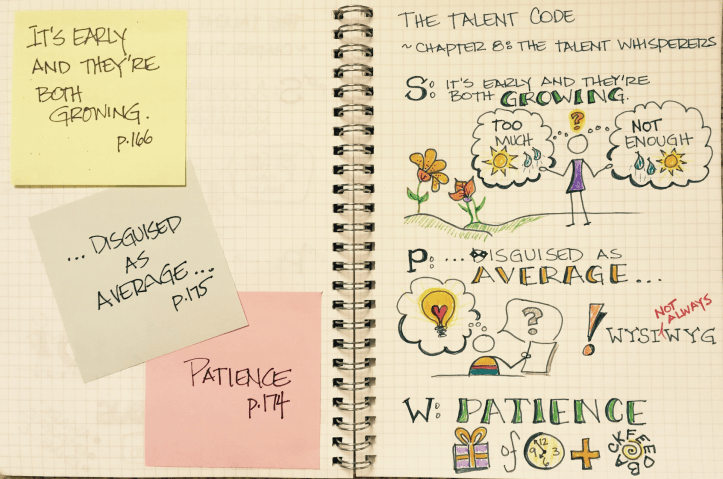 IT'S EARLY
AND THEY'RE
BOTH
GROWING.
p.166
...DISGUISED
AS
AVERAGE...
p.175
PATIENCE
p.174
THE TALENT CODE
~CHAPTER 8: THE TALENT WHISPERERS
S: IT'S EARLY AND THEY'RE
BOTH GROWING.
?
TOO
MUCH
NOT
ENOUGH
P: ...DISGUISED AS
AVERAGE...
?
!
NOT
ALWAYS
WYSIWYG
W: PATIENCE
of
12
9 3
6
+
FEEDBACK